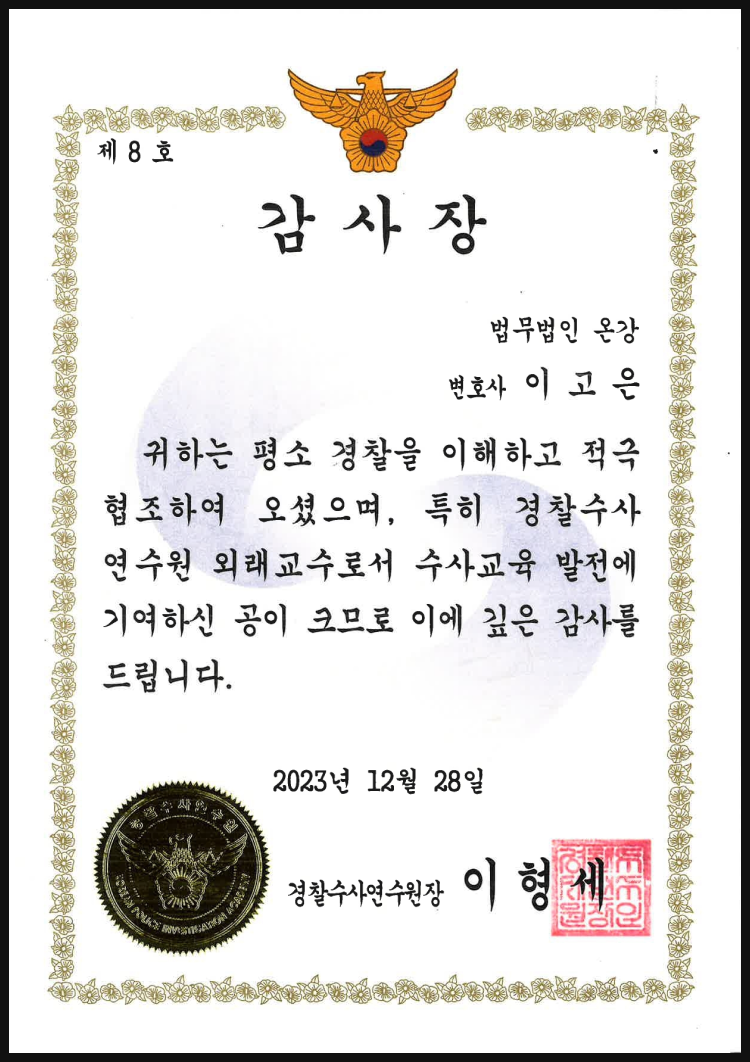 제 8 호
감 사 장
법무법인 온강
변호사 이 고 은
귀하는 평소 경찰을 이해하고 적극
협조하여 오셨으며, 특히 경찰수사
연수원 외래교수로서 수사교육 발전에
기여하신 공이 크므로 이에 깊은 감사를
드립니다.
2023년 12월 28일
경찰수사연수원
KOREAN POLICE INVESTIGATION ACADEMY
경찰수사연수원장 이 형 세